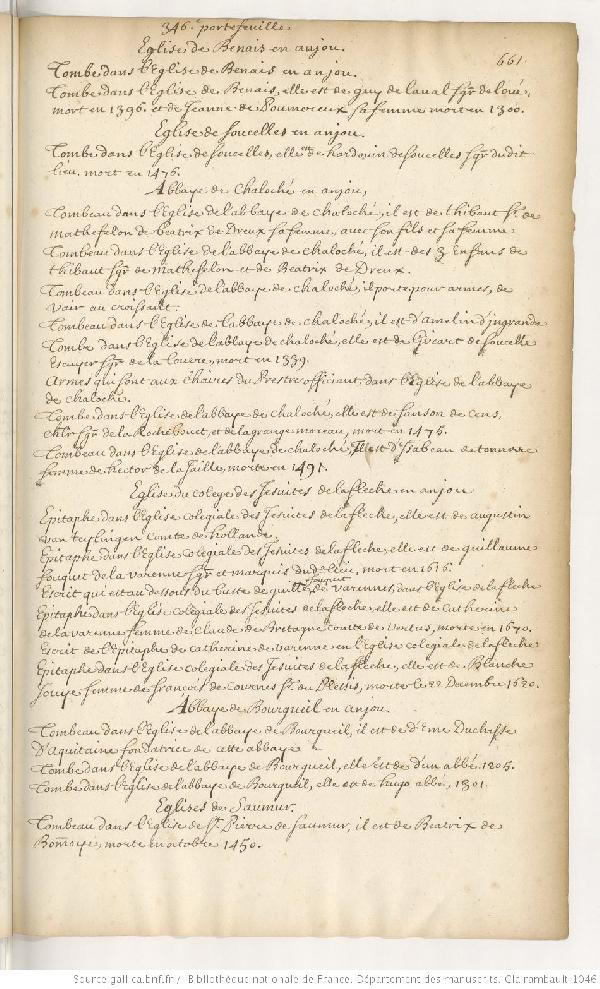 346. portefeuille.
Eglise de Benais en anjou.
661
Tombe dans l'Eglise de Benais en anjou.
Tombe dans l'Eglise de Benais, elle est de guy de laval sgr de loué,
mort en 1396. et de Jeanne de sa femme mort en 1300.
Eglise de soucelles en anjou.
Tombe dans l'Eglise de soucelles, elle de hardouin de soucelles sgr du dit
lieu. mort en 1476.
Abbaye de Chaloché en anjou,
Tombeau dans l'Eglise de l'abbaye de chaloché, il est de thibaut sr. de
mathefelon de beatrix de Dreux sa femme, avec son fils et sa femme.
Tombeau dans l'Eglise de l'abbaye de chaloché, il est des 3 Enfans de
thibaut sgr de mathefelon et de Beatrix de Dreux.
Tombeau dans l'Eglise de l'abbaye de chaloché, il porte pour armes, de
vair au croissant.
Tombeau dans l'Eglise de l'abbaye de chaloché, il est d'amelin d'jngrande
Tombe dans l'Eglise de l'abbaye de chaloché, elle est de Gireart de soucelle
Escuyer sgr de la mort en 1339.
Armes qui sont aux chaires du Prestre officiant dans l'Eglise de l'abbaye
de chaloché.
Tombe dans l'Eglise de l'abbaye de chaloché, elle est de sanson de cens,
chlr sgr de la Rochibouet, et de lagrange moreau, mort en 1475.
Tombeau dans l'Eglise de l'abbaye de chaloché, Il est d'Isabeau de tonnerre
femme de hector de la Jaille, morte en 1491.
Eglise du colege des Jesuites de lafleche en anjou
Epitaphe dans l'Eglise colegiale des Jesuites de lafleche, elle est de augustin
van teylingen comte de hollande,
Epitaphe dans l'Eglise colegiale des Jesuites de lafleche elle est de guillaume
fouquet de la varenne sgr et marquis du d. lieu, mort en 1616.
Escrit qui est au dessous du buste de guille. fouquet de varennes, dans l'Eglise de lafleche
Epitaphe dans l'Eglise colegiale des Jesuites de lafleche elle est de Catherine
de la varenne femme de Claude de Bretagne comte de vertus, morte en 1670.
Escrit de l'Epitaphe de catherine de varenne en l'Eglise colegiale de lafleche.
Epitaphe dans l'Eglise colegiale des Jesuites de lafleche, elle est de Blanche
femme de francois de sr. du Plessis, morte le 22 Decembre 1620.
Abbaye de Bourgueil en anjou.
Tombeau dans l'Eglise de l'abbaye de Bourgueil, il est de d'Eme Duchesse
D'aquitaine fondatrice de cette abbaye
Tombe dans l'Eglise de l'abbaye de Bourgueil, elle est de d'un abbé. 1205.
Tombe dans l'Eglise de l'abbaye de Bourgueil, elle est de hugo abbé, 1301.
Eglises de Saumur.
Tombeau dans l'Eglise de St. Pierre de saumur, il est de Beatrix de
morte en octobre 1450.
Source gallica.bnf.fr / Bibliothèque nationale de France. Département des manuscrits. Clairambault 1046